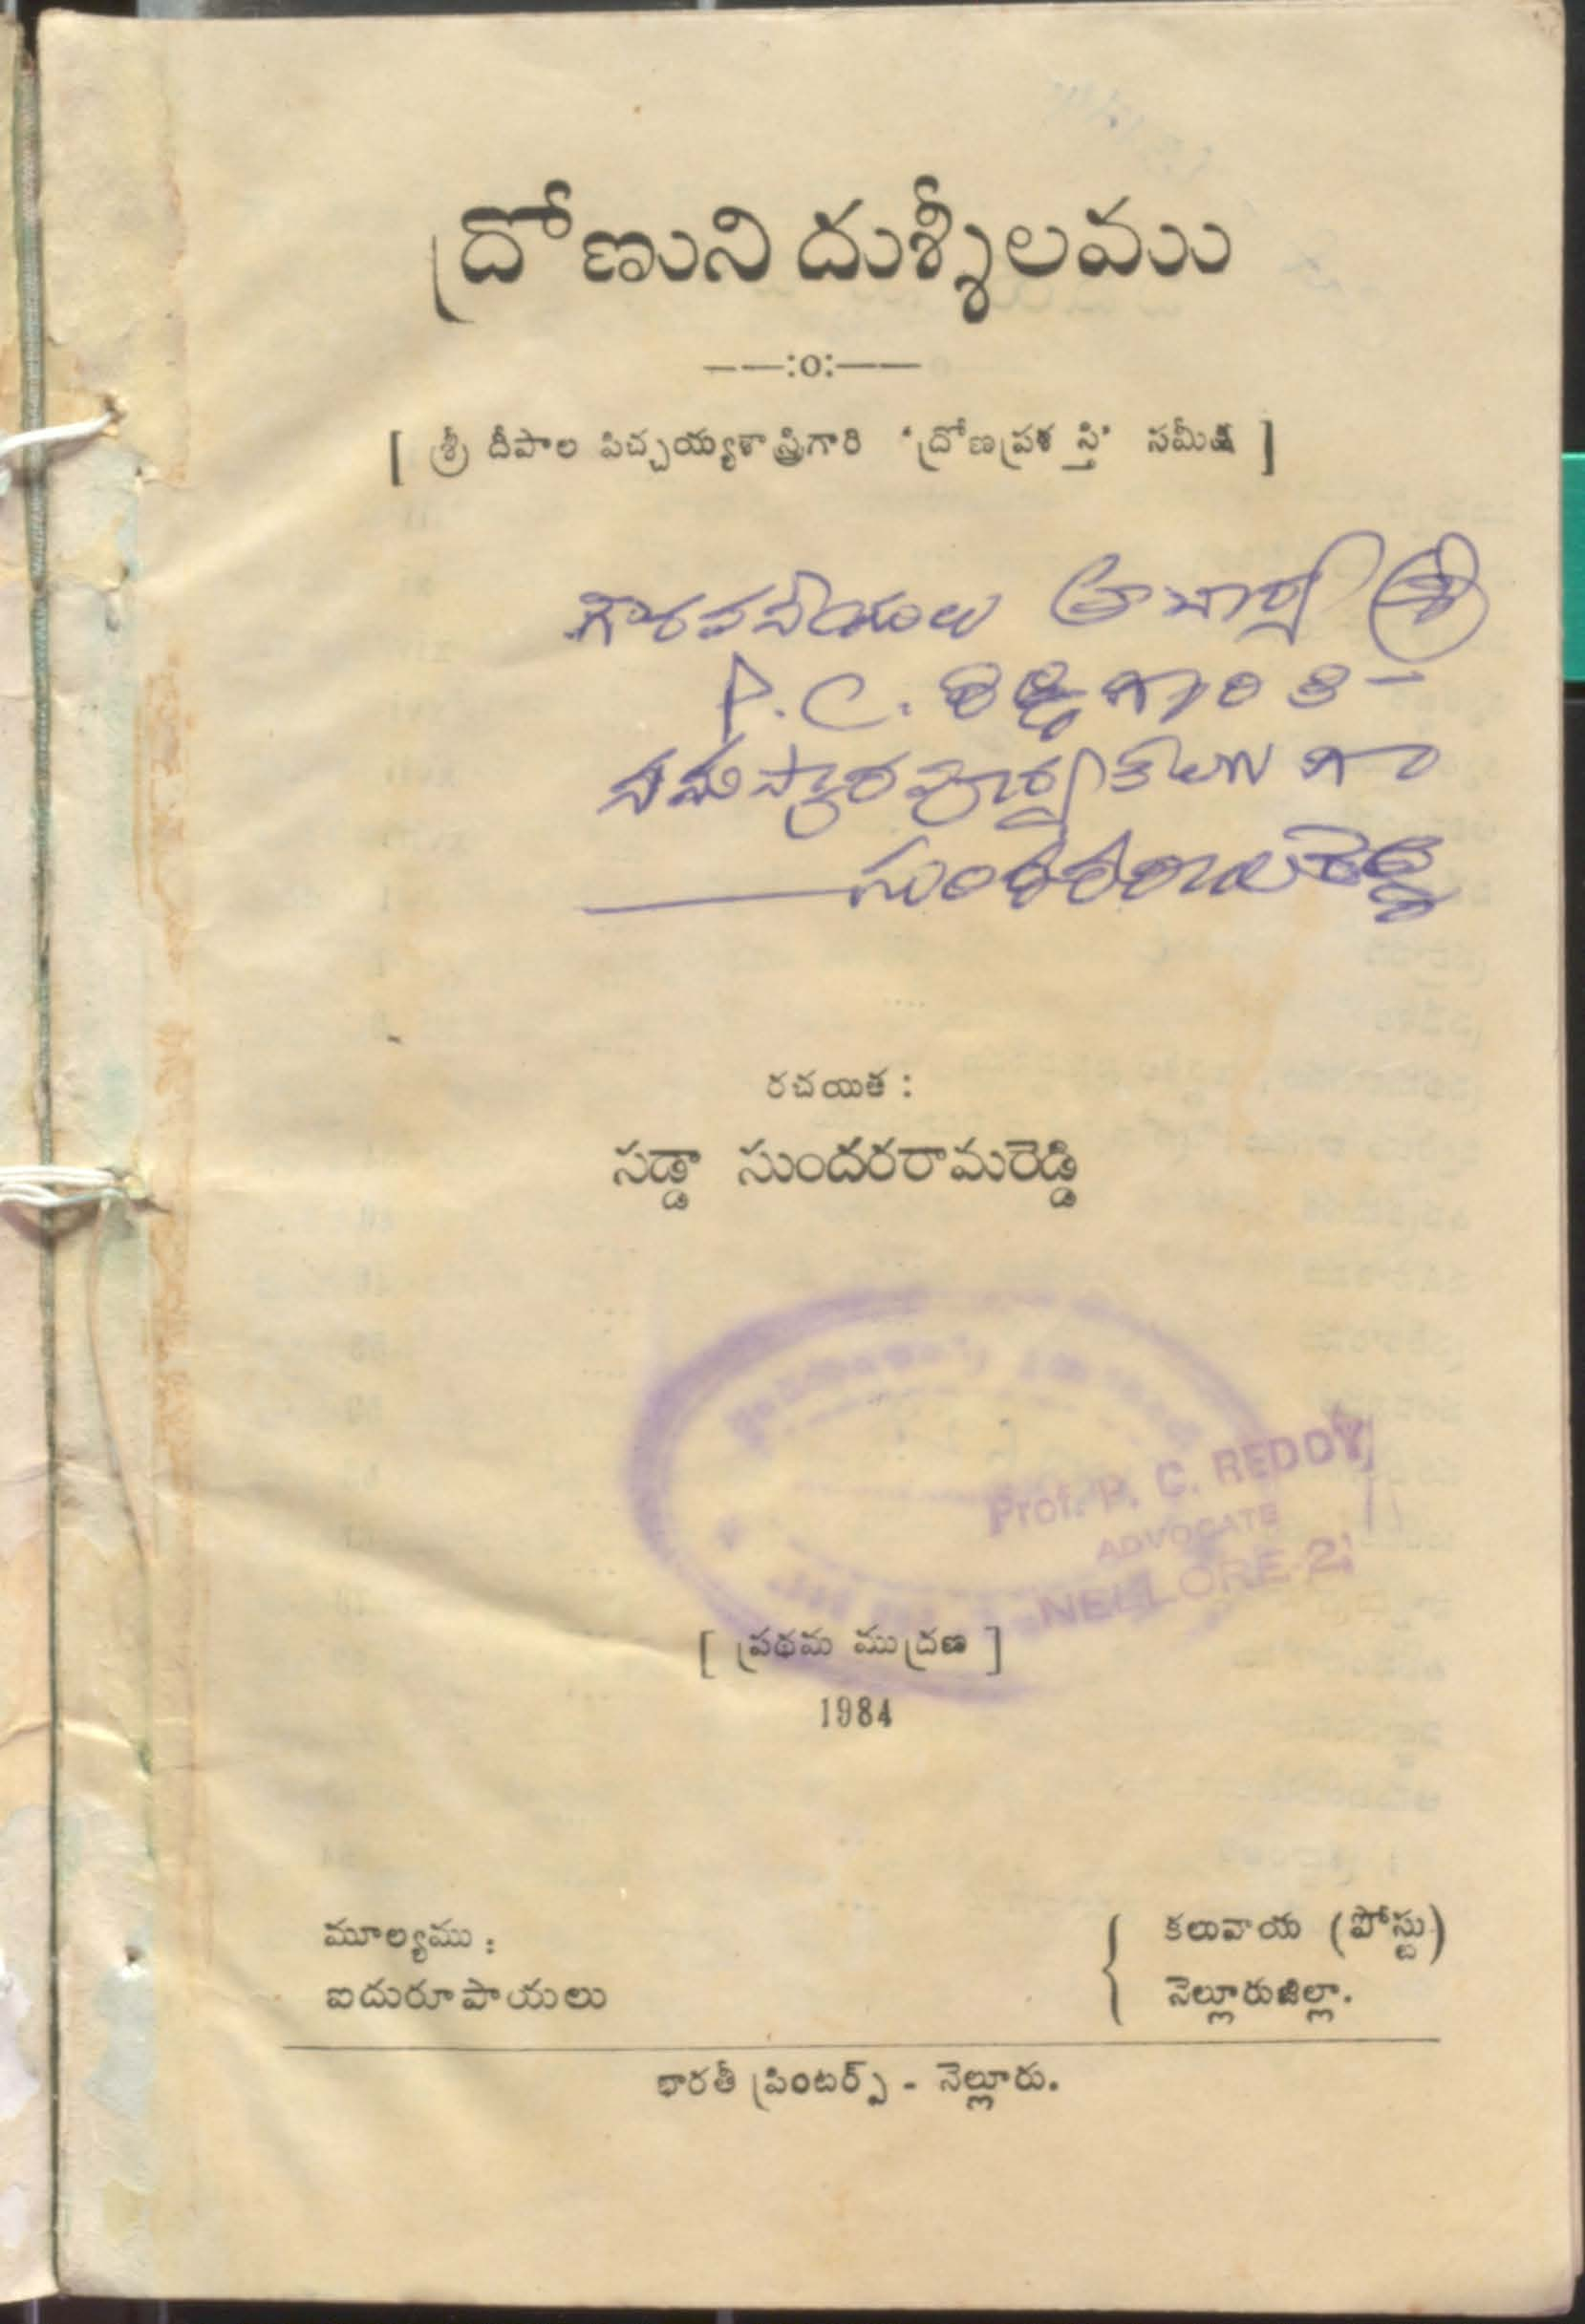 ద్రోణుని దుశ్శీలము
——:o:——
[ శ్రీ దీపాల పిచ్చయ్యశాస్త్రిగారి 'ద్రోణప్రశస్తి' సమీక్ష ]
గౌరవనీయులు ఆచార్య శ్రీ
P. C. రెడ్డిగారికి
నమస్కారపూర్వకంగా
సుందరరామరెడ్డి
రచయిత :
సడ్డా సుందరరామరెడ్డి
Prof. P. C. REDDY
ADVOCATE
NELLORE-2
[ ప్రథమ ముద్రణ ]
1984
మూల్యము :
ఐదురూపాయలు
కలువాయ (పోస్టు)
నెల్లూరుజిల్లా.
భారతీ ప్రింటర్స్ - నెల్లూరు.